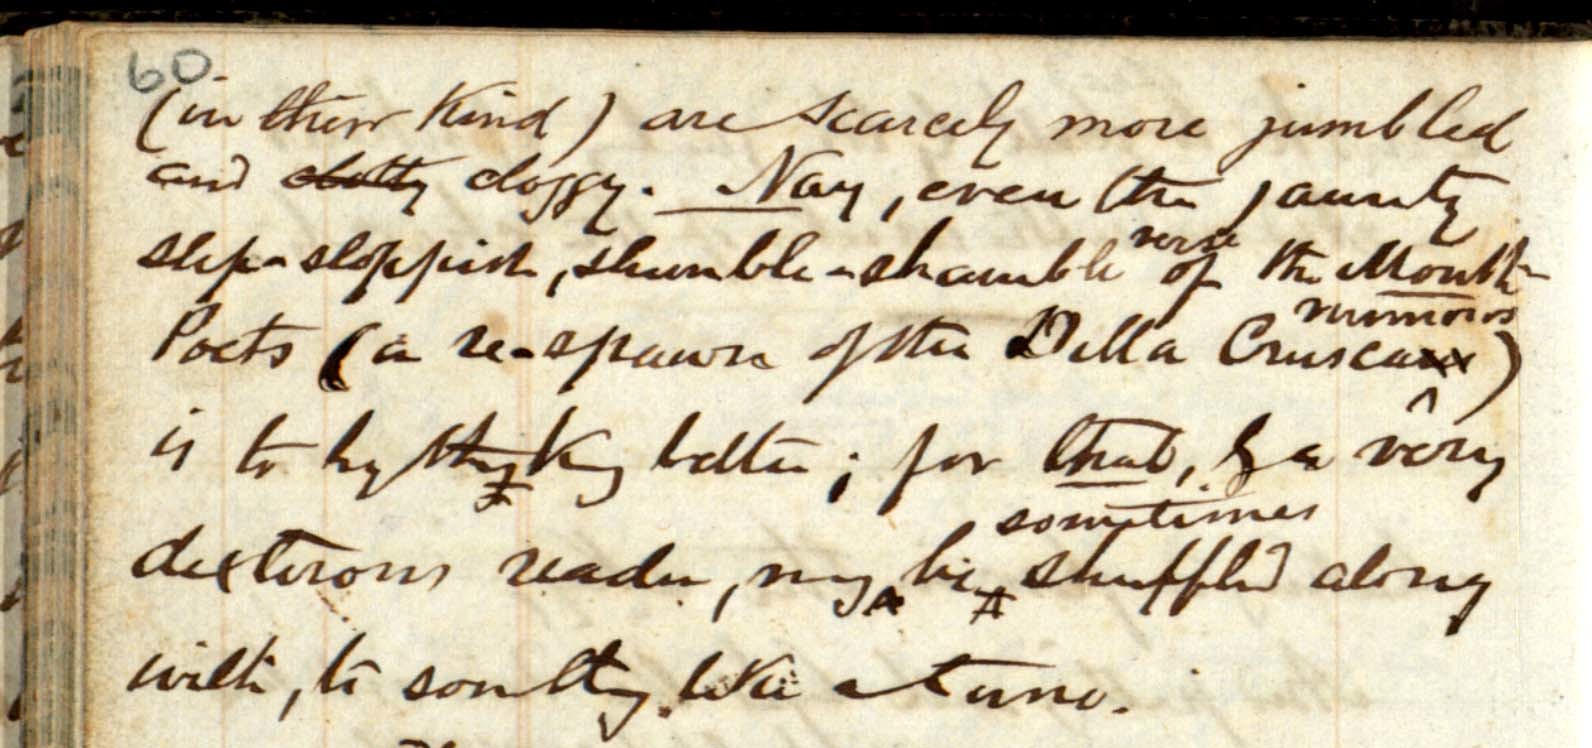 60.
(in their kind) are scarcely more jumbled
and clotty cloggy. Nay, even the jaunty
slip-sloppish, shumble-shamble verse of the Mouth-
Poets (a re-spawn of the Della Cruscan mimosos)
is to by thky better; for that, by a very
dexterous reader, may be sometimes shuffled along
with, to somthg like a tune.